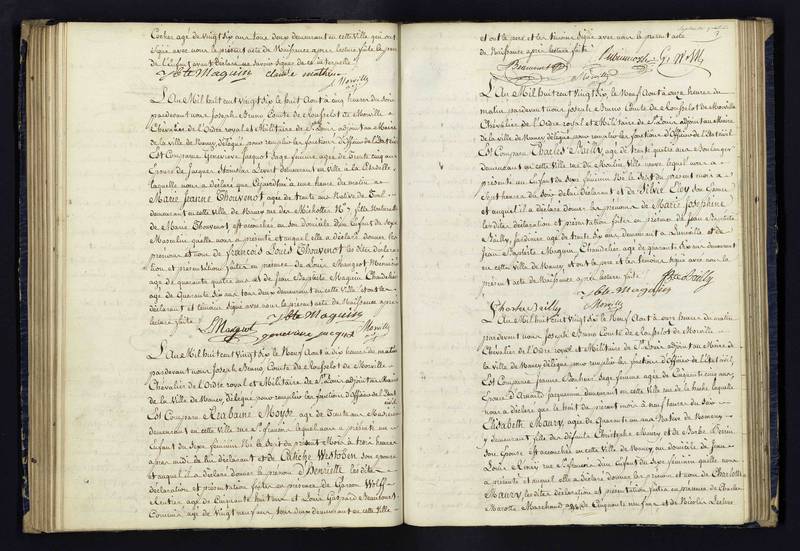 Cocher agé de Vingt Six ans tous deux demeurant en cette Ville qui ont
Signé avec nous le présent acte de Naissance après lecture faite le père
de l'Enfant ayant Déclaré ne savoir signer de ce interpellé
Jbte Maguin claude mathieu
Morville adj
L'An Mil huit cent Vingt Six le huit Aout à cinq heures du soir
pardevant nous Joseph Bruno Comte de Rousselot de Morville
Chevalier de l'Ordre royal et Militaire de St Louis adjoint au Maire
de la Ville de Nancy, délégué pour remplir les fonctions d'Officier de l'Etat civil
Est Comparue Geneviève Jacquot Sage femme agée de Trente cinq ans
Epouse de Jacques demeurant en Ville à la Citadelle
laquelle nous a déclaré que Cejourdhui à une heure du matin
Marie Jeanne Thouvenot agée de trente ans Native de Toul
demeurant en cette Ville de Nancy rue des Michottes No 7, fille Naturelle
de Marie Thouvenot est accouchée en son domicile d'un Enfant du Sexe
Masculin qu'elle nous a présenté et auquel elle a déclaré donner les
prénoms et nom de François Louis Thouvenot les dites déclara
tion et présentation faites en présence de Louis Mangeot Menuisier
agé de quarante quatre ans et de Jean Baptiste Maguin Chandelier
agé de Quarante Six ans tous deux demeurant en cette Ville et ont le
déclarant et témoins signé avec nous le présent acte de Naissance après
lecture faite L Mangeot Jbte Maguin
genevieve jacquot Morville adj
L'An Mil huit cent Vingt Six le Neuf Aout à dix heures du matin
pardevant nous Joseph Bruno Comte de Rousselot de Morville
Chevalier de l'Ordre royal et Militaire de St Louis adjoint au Maire
de la Ville de Nancy, délégué pour remplir les fonctions d'Officier de l'Etat civil
Est Comparu Moyse agé de Trente ans
demeurant en cette Ville rue St lequel nous a présenté un
Enfant du Sexe féminin Né le Sept du présent Mois à trois heures
après midi de lui déclarant et de son épouse
et auquel il a déclaré donner le prénom d'Henriette les dites
déclaration et présentation faites en présence de Gerson Wolff
Rentier agé de Cinquante huit ans et Louis Gaspard Beaumont
Commis agé de Vingt neuf ans tous deux demeurant en cette Ville
et ont le père et les témoins signé avec nous le présent acte
de Naissance après lecture faite
Beaumont Wolff
Morville
L'An Mil huit cent Vingt Six le Neuf Aout à onze heures du
matin pardevant nous Joseph Bruno Comte de Rousselot de Morville
Chevalier de l'Ordre royal et Militaire de St Louis adjoint au Maire
de la Ville de Nancy délégué pour remplir les fonctions d'Officier de l'Etat civil
Est Comparu Charles Bailly agé de trente quatre ans Boulanger
demeurant en cette Ville rue du Moulin lequel nous a
présenté un Enfant du Sexe féminin Né le Sept du présent mois à
Sept heures du Soir de lui déclarant et de son Epouse
et auquel il a déclaré donner les prénoms de Marie Joséphine
les dites déclaration et présentation faites en présence de Jean Baptiste
Bailly, Jardinier agé de trente Six ans demeurant à Lunéville et de
Jean Baptiste Maguin, Chandelier agé de quarante Six ans demeurant
en cette Ville de Nancy et ont le père et les témoins signé avec nous le
présent acte de Naissance après lecture faite Jbte Bailly
Jbte Maguin
Charles Bailly Morville
L'An Mil huit cent Vingt Six le Neuf Aout à onze heures du matin
pardevant nous Joseph Bruno Comte de Rousselot de Morville
Chevalier de l'Ordre royal et Militaire de St Louis adjoint au Maire de
la Ville de Nancy délégué pour remplir les fonctions d'Officier de l'Etat civil,
Est Comparue Jeanne Sage femme agée de Cinquante cinq ans
Epouse d'Arnould Jacquemin demeurant en cette Ville rue de la hache laquelle
nous a déclaré que le huit du présent mois à neuf heures du Soir
Elisabeth Maury agée de Quarante un ans Native de Nomeny
y demeurant fille des défunts Christophe Maury et de Barbe
son Epouse est accouchée en cette Ville de Nancy au domicile de Jean
Louis rue St d'un Enfant du Sexe féminin qu'elle nous
a présenté et auquel elle a déclaré donner les prénom et nom de Charlotte
Maury, les dites déclaration et présentation faites en présence de Charles
Marotte Marchand agé de Cinquante neuf ans et de Nicolas Leclerc